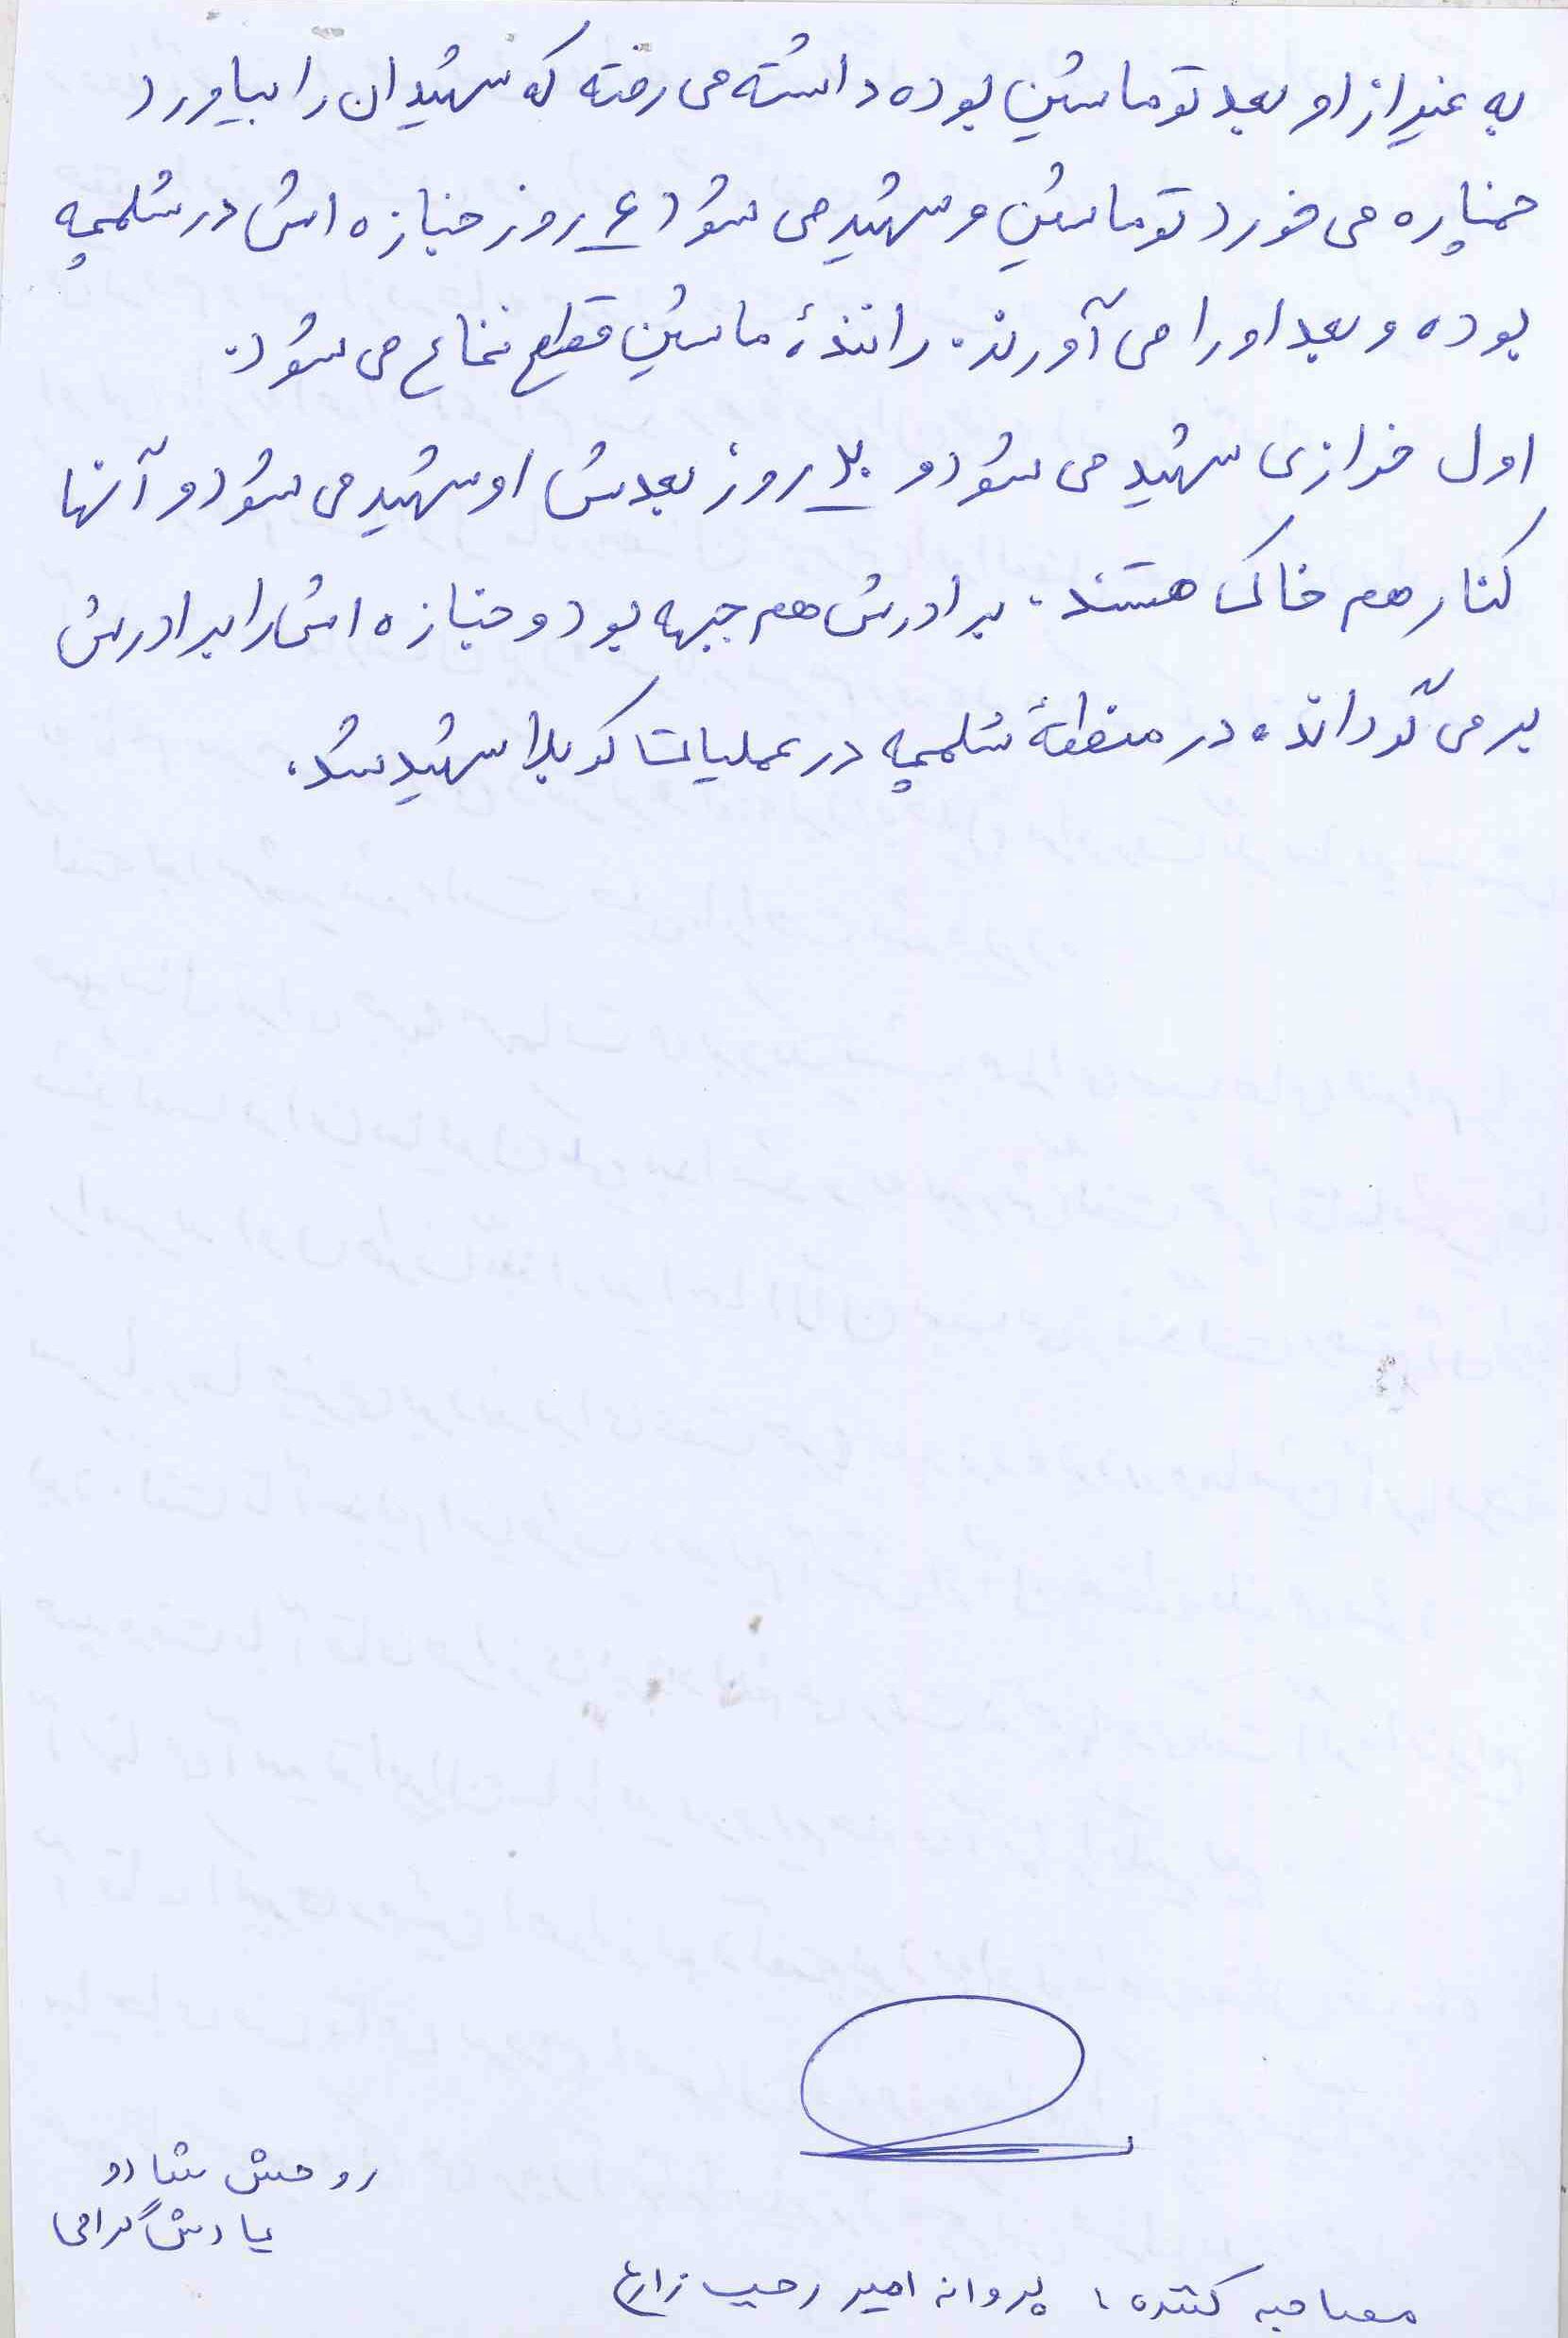 به غیر از او بعد تو ماشین بوده داشته می رفته که شهیدان را بیاورد
خمپاره می خورد تو ماشین و شهید می شود ۶ روز جنازه اش در شلمچه
بوده و بعد او را می آورند. رانندهٔ ماشین قطع نخاع می شود.
اول خرازی شهید می شود و ۲۰ روز بعدش او شهید می شود و آنها
کنار هم خاک هستند. برادرش هم جبهه بود و جنازه اش را برادرش
بر می گرداند. در منطقهٔ شلمچه در عملیات کربلا شهید شد.
روحش شاد و
یادش گرامی
مصاحبه کننده: پروانه امیر رجب زارع